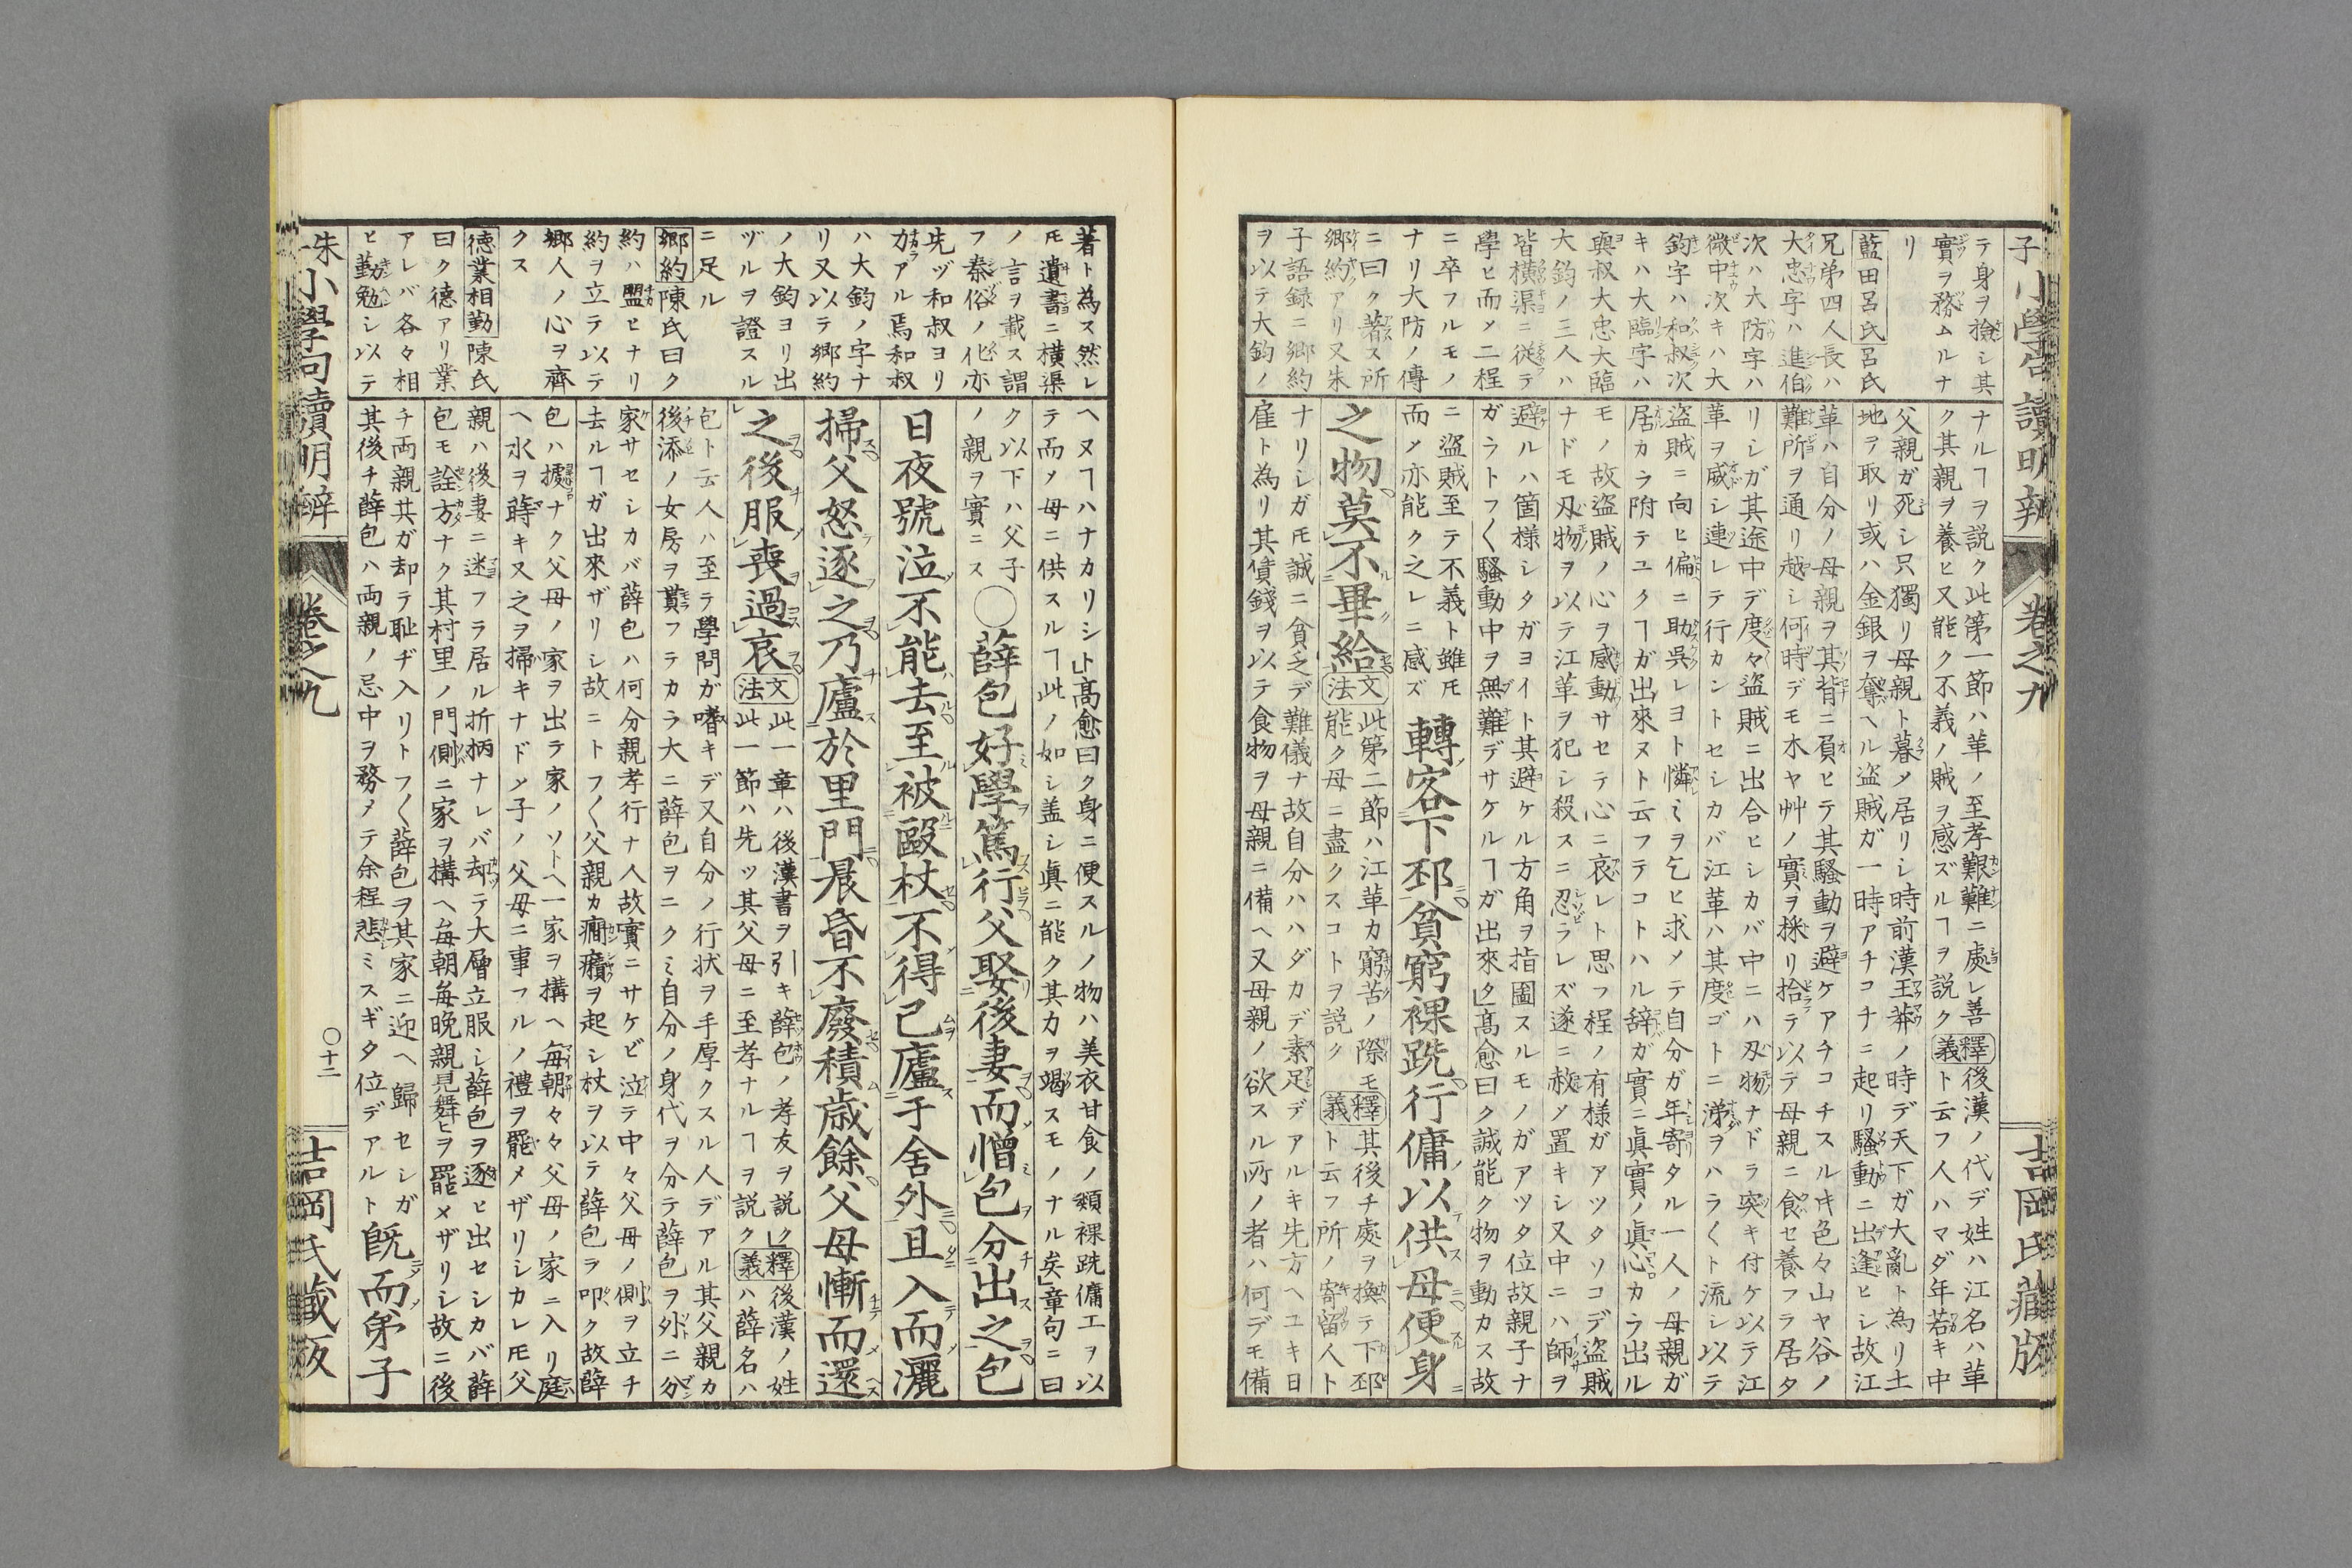 子 小學句讀明辨 卷之九 吉岡氏藏版
テ身ヲ撿シ其
實ヲ務ムルナ
リ
藍田呂氏 呂氏
兄弟四人長ハ
大忠字ハ進伯
次ハ大防字ハ
微中次キハ大
鈞字ハ和叔次
キハ大臨字ハ
與叔大忠大臨
大鈞ノ三人ハ
皆橫渠ニ従テ
學ヒ而メ二程
ニ卒フルモノ
ナリ大防ノ傳
ニ曰ク著ス所
鄉約アリ又朱
子語録ニ鄉約
ヲ以テ大鈞ノ
ナルヿヲ説ク此第一節ハ革ノ至孝艱難ニ處レ善
ク其親ヲ養ヒ又能ク不義ノ賊ヲ感ズルヿヲ説ク
釋義 後漢ノ代デ姓ハ江名ハ革
ト云フ人ハマダ年若キ中
父親ガ死シ只獨リ母親ト暮メ居リシ時前漢王莽ノ時デ天下ガ大亂ト為リ土
地ヲ取リ或ハ金銀ヲ奪ヘル盗賊ガ一時アチコチニ起リ騒動ニ出逢ヒシ故江
革ハ自分ノ母親ヲ其背ニ負ヒテ其騒動ヲ避ケアチコチスルヰ色々山ヤ谷ノ
難所ヲ通リ越シ何時デモ木ヤ艸ノ實ヲ採リ拾テ以テ母親ニ食セ養フラ居タ
リシガ其途中デ度々盗賊ニ出合ヒシカバ中ニハ刄物ナドラ突キ付ケ以テ江
革ヲ威シ連レテ行カントセシカバ江革ハ其度ゴトニ涕ヲハラ〱ト流シ以テ
盗賊ニ向ヒ偏ニ助ケ呉レヨト憐ミヲ乞ヒ求メテ自分ガ年寄タル一人ノ母親ガ
居カラ附テユクヿガ出來ヌト云フテコトハル辞ガ實ニ眞實ノ眞心カラ出ル
モノ故盗賊ノ心ヲ感動サセテ心ニ哀レト思フ程ノ有様ガアツタソコデ盗賊
ナドモ刄物ヲ以テ江革ヲ犯シ殺スニ忍ラレズ遂ニ赦メ置キシ又中ニハ師ヲ
避ルハ箇様シタガヨイト其避ケル方角ヲ指圖スルモノガアツタ位故親子ナ
ガラトフ〱騒動中ヲ無難デサケルヿガ出來タ」高愈曰ク誠能ク物ヲ動カス故
ニ盗賊至テ不義ト雖モ
而メ亦能ク之レニ感ズ
轉客下邳貧窮裸跣行傭以供母便身
之物莫不畢給
文法 此第二節ハ江革カ窮苦ノ際モ
能ク母ニ盡クスコトヲ説ク
釋義 其後チ處ヲ換テ下邳
ト云フ所ノ寄留人ト
ナリシガモ誠ニ貧乏デ難儀ナ故自分ハハダカデ素足デアルキ先方ヘユキ日
雇ト為リ其債錢ヲ以テ食物ヲ母親ニ備ヘ又母親ノ欲スル所ノ者ハ何デモ備
著ト為ス然レ
モ遺書ニ橫渠
ノ言ヲ載ス謂
フ秦俗ノ化亦
先ヅ和叔ヨリ
力アル焉和叔
ハ大鈞ノ字ナ
リ又以テ鄉約
ノ大鈞ヨリ出
ヅルヲ證スル
ニ足ル
鄉約 陳氏曰ク
約ハ盟ヒナリ
約ヲ立テ以テ
鄉人ノ心ヲ齊
クス
德業相勤 陳氏
曰ク德アリ業
アレバ各々相
ヒ勤勉シ以テ
ヘヌヿハナカリシト」高愈曰ク身ニ便スルノ物ハ美衣甘食ノ類裸跣傭工ヲ以
テ而メ母ニ供スルヿ此ノ如シ盖シ眞ニ能ク其力ヲ竭スモノナル矣」章句ニ曰
ク以下ハ父子
ノ親ヲ實ニス
〇薛包好學篤行父娶後妻而憎包分出之包
日夜號泣不能去至被毆杖不得已廬于舍外旦入而灑
掃父怒逐之乃廬於里門晨昏不廢積歳餘父母慚而還
之後服喪過哀
文法 此一章ハ後漢書ヲ引キ薛包ノ孝友ヲ説ク
此一節ハ先ッ其父母ニ至孝ナルヿヲ説ク
釋義 後漢ノ姓
ハ薛名ハ
包ト云人ハ至テ學問ガ嗜キデ又自分ノ行状ヲ手厚クスル人デアル其父親カ
後添ノ女房ヲ貰フテカラ大ニ薛包ヲニクミ自分ノ身代ヲ分テ薛包ヲ外ニ分
家サセシカバ薛包ハ何分親孝行ナ人故實ニサケビ泣テ中々父母ノ側ヲ立チ
去ルヿガ出來ザリシ故ニトフ〱父親カ癇癪ヲ起シ杖ヲ以テ薛包ヲ叩ク故薛
包ハ據ナク父母ノ家ヲ出ラ家ノソトヘ一家ヲ構ヘ毎朝々々父母ノ家ニ入リ庭
ヘ水ヲ蒔キ又之ヲ掃キナドシ子ノ父母ニ事フルノ禮ヲ罷メザリシカレモ父
親ハ後妻ニ迷フラ居ル折柄ナレバ却ラ大層立服シ薛包ヲ逐ヒ出セシカバ薛
包モ詮方ナク其村里ノ門側ニ家ヲ構ヘ毎朝毎晩親見舞ヒヲ罷メザリシ故ニ後
チ両親其ガ却ラ耻ヂ入リトフ〱薛包ヲ其家ニ迎ヘ歸セシガ
其後チ薛包ハ両親ノ忌中ヲ務メテ余程悲ミスギタ位デアルト
既而弟子
朱 小學句讀明辨 卷之九 〇十二 吉岡氏藏版